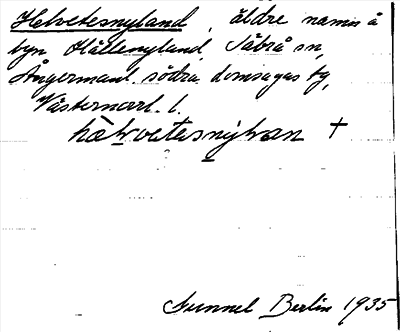 Helvetesnyland, äldre namn å
byn Hällenyland, Säbrå sn,
Ångermanl. södra domsagas tg,
Västernorrl. l.
hàlvetesnýlvan †
Gunnel Berlin 1935